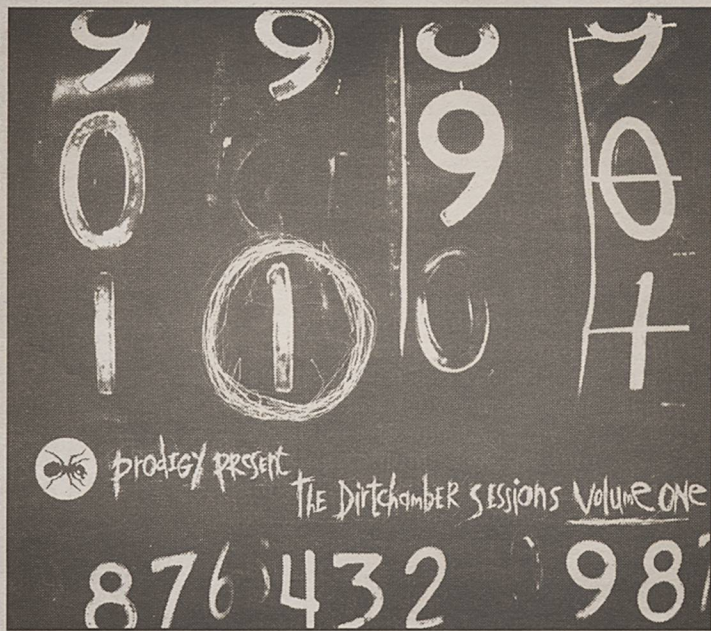 9 9 0 9
0 9 0
1 1 0 1
prodIGY present
the DirtchambER sEssions Volume onE
876 432 98